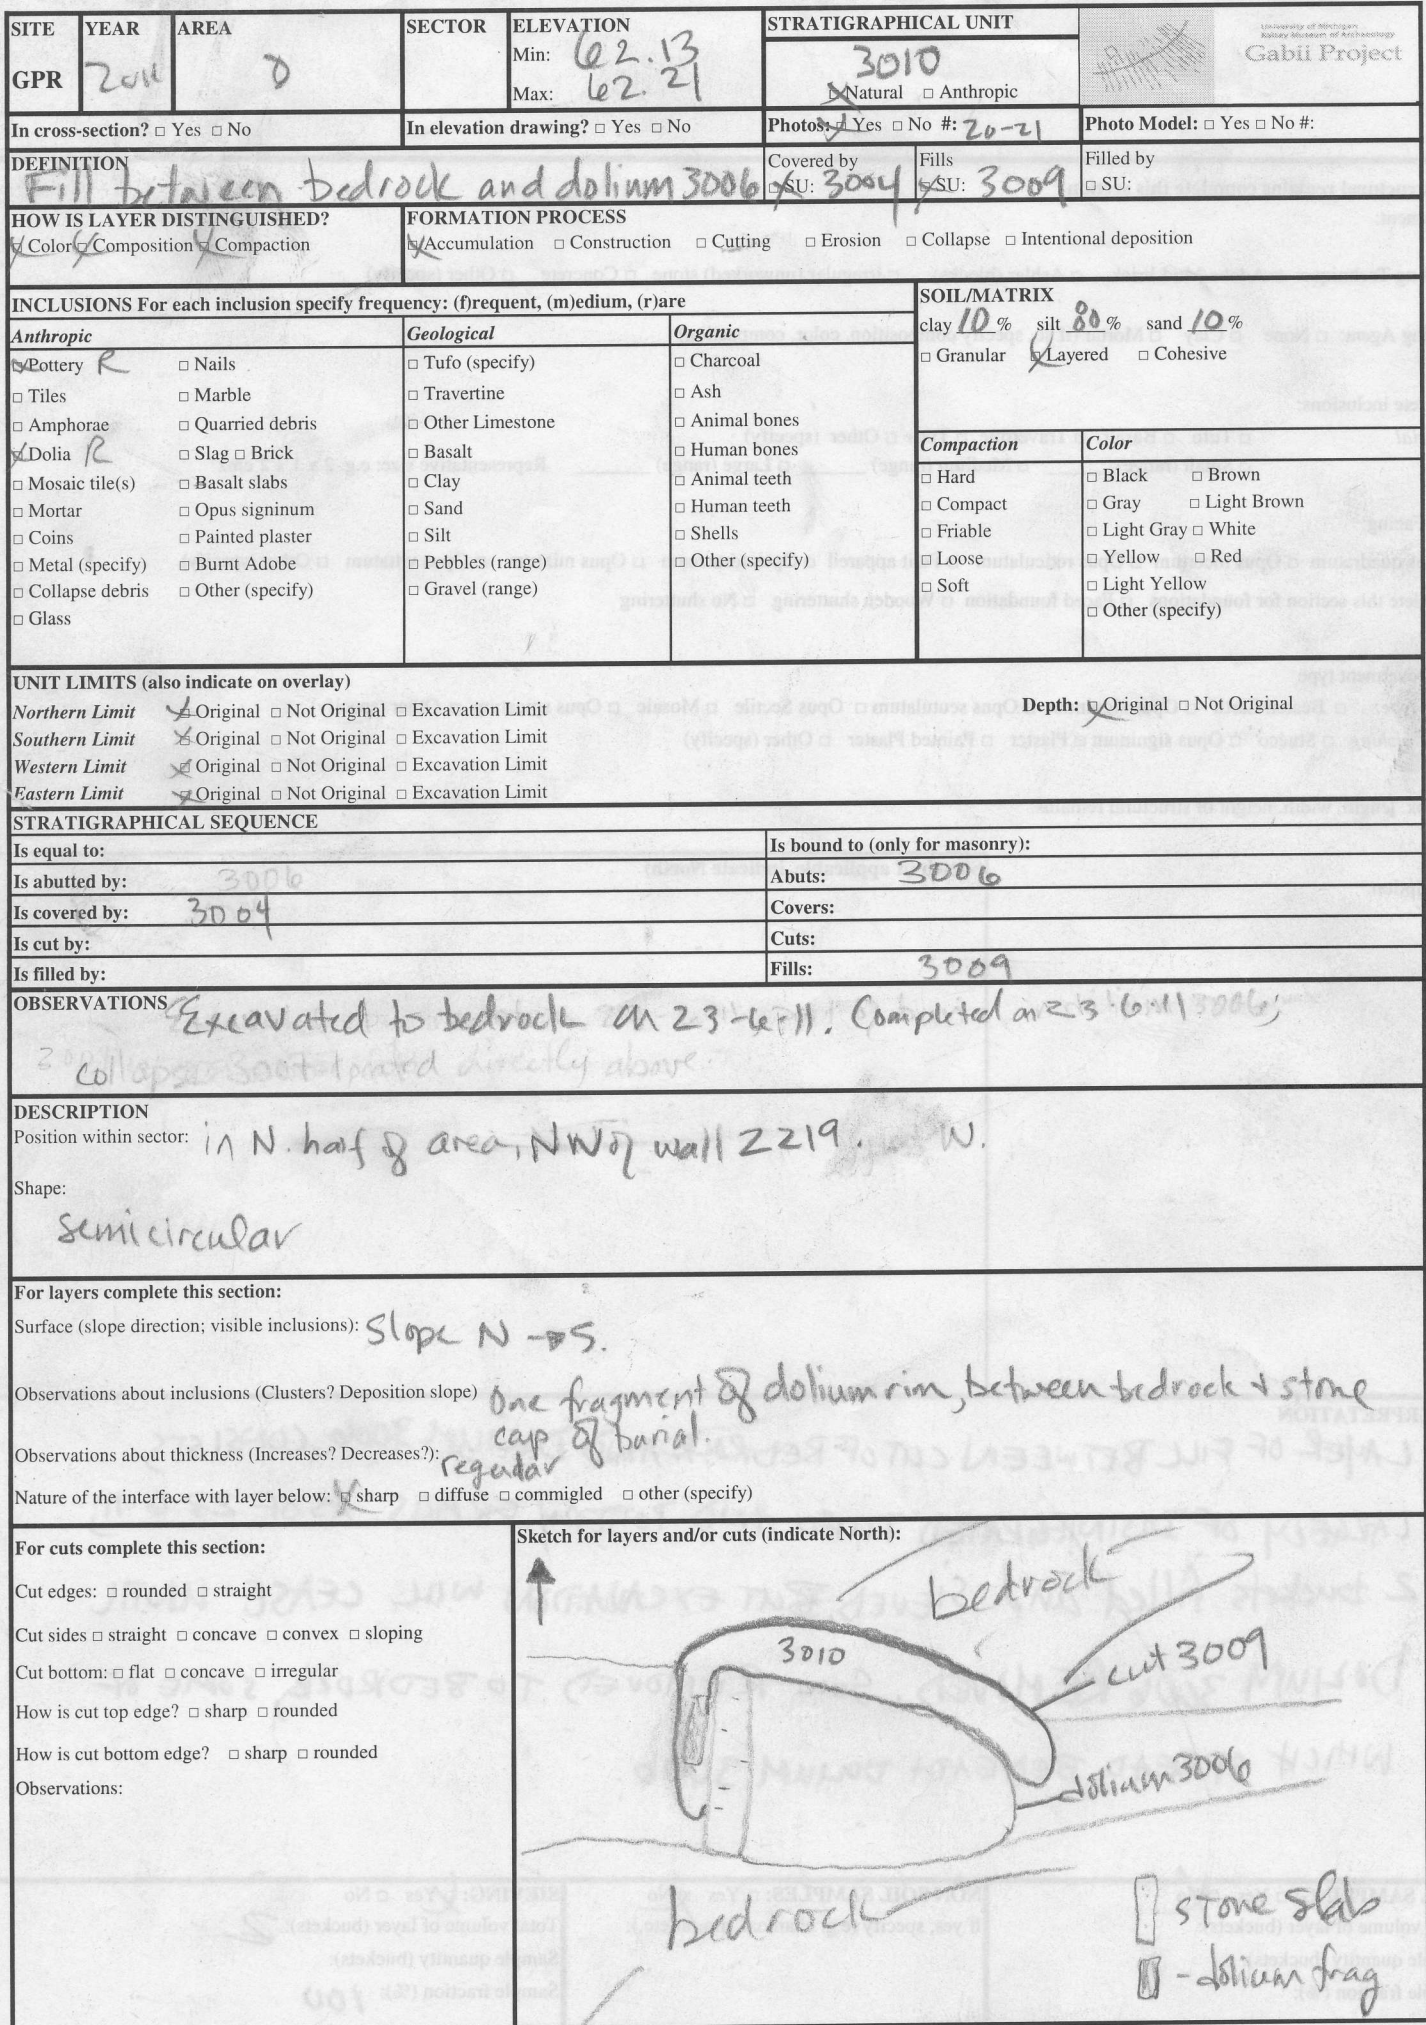 SITE YEAR AREA SECTOR ELEVATION STRATIGRAPHICAL UNIT
GPR 2011 D Min: 62.13 3010
Max: 62.21 ☒ Natural □ Anthropic
University of Michigan
Kelsey Museum of Archaeology
Gabii Project
In cross-section? □ Yes □ No In elevation drawing? □ Yes □ No Photos: ☒ Yes □ No #: 20-21 Photo Model: □ Yes □ No #:
DEFINITION Covered by Fills Filled by
Fill between bedrock and dolium 3006 ☒ SU: 3004 ☒ SU: 3009 □ SU:
HOW IS LAYER DISTINGUISHED? FORMATION PROCESS
☒ Color ☒ Composition ☒ Compaction ☒ Accumulation □ Construction □ Cutting □ Erosion □ Collapse □ Intentional deposition
INCLUSIONS For each inclusion specify frequency: (f)requent, (m)edium, (r)are
Anthropic
☒ Pottery R □ Nails
□ Tiles □ Marble
□ Amphorae □ Quarried debris
☒ Dolia R □ Slag □ Brick
□ Mosaic tile(s) □ Basalt slabs
□ Mortar □ Opus signinum
□ Coins □ Painted plaster
□ Metal (specify) □ Burnt Adobe
□ Collapse debris □ Other (specify)
□ Glass
Geological
□ Tufo (specify)
□ Travertine
□ Other Limestone
□ Basalt
□ Clay
□ Sand
□ Silt
□ Pebbles (range)
□ Gravel (range)
Organic
□ Charcoal
□ Ash
□ Animal bones
□ Human bones
□ Animal teeth
□ Human teeth
□ Shells
□ Other (specify)
SOIL/MATRIX
clay 10 % silt 80 % sand 10 %
□ Granular ☒ Layered □ Cohesive
Compaction
□ Hard
□ Compact
□ Friable
□ Loose
□ Soft
Color
□ Black □ Brown
□ Gray □ Light Brown
□ Light Gray □ White
□ Yellow □ Red
□ Light Yellow
□ Other (specify)
UNIT LIMITS (also indicate on overlay)
Northern Limit ☒ Original □ Not Original □ Excavation Limit Depth: ☒ Original □ Not Original
Southern Limit ☒ Original □ Not Original □ Excavation Limit
Western Limit ☒ Original □ Not Original □ Excavation Limit
Eastern Limit ☒ Original □ Not Original □ Excavation Limit
STRATIGRAPHICAL SEQUENCE
Is equal to: Is bound to (only for masonry):
Is abutted by: 3006 Abuts: 3006
Is covered by: 3004 Covers:
Is cut by: Cuts:
Is filled by: Fills: 3009
OBSERVATIONS Excavated to bedrock on 23-6-11. Completed on 23-6-11 3006;
collapse 3007 located directly above.
DESCRIPTION
Position within sector: in N. half of area, NW of wall 2219. W.
Shape:
semicircular
For layers complete this section:
Surface (slope direction; visible inclusions): Slope N → S.
Observations about inclusions (Clusters? Deposition slope) One fragment of dolium rim, between bedrock + stone
cap of burial.
Observations about thickness (Increases? Decreases?): regular
Nature of the interface with layer below: ☒ sharp □ diffuse □ commigled □ other (specify)
For cuts complete this section:
Cut edges: □ rounded □ straight
Cut sides □ straight □ concave □ convex □ sloping
Cut bottom: □ flat □ concave □ irregular
How is cut top edge? □ sharp □ rounded
How is cut bottom edge? □ sharp □ rounded
Observations:
Sketch for layers and/or cuts (indicate North):
bedrock
3010
cut 3009
dolium 3006
bedrock
stone slab
- dolium frag